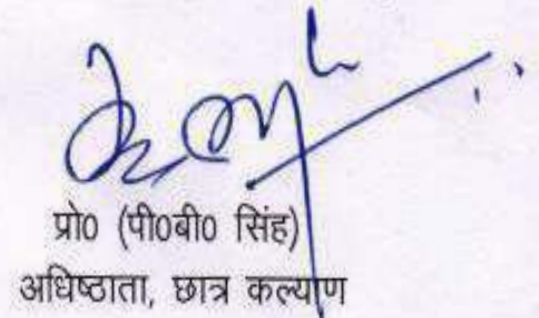 प्रो0 (पी0बी0 सिंह)
अधिष्ठाता, छात्र कल्याण